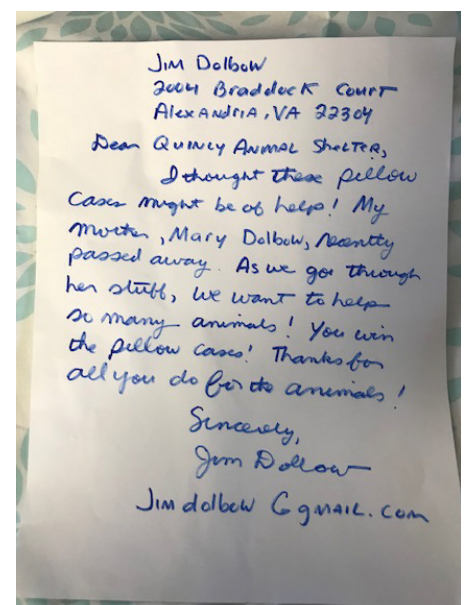 Jim Dolbow
2004 Braddock Court
Alexandria, VA 22304
Dear Quincy Animal Shelter,
I thought these pillow
cases might be of help! My
mother, Mary Dolbow, recently
passed away. As we go through
her stuff, we want to help
so many animals! You win
the pillow cases! Thanks for
all you do for the animals!
Sincerely,
Jim Dolbow
Jimdolbow @gmail.com